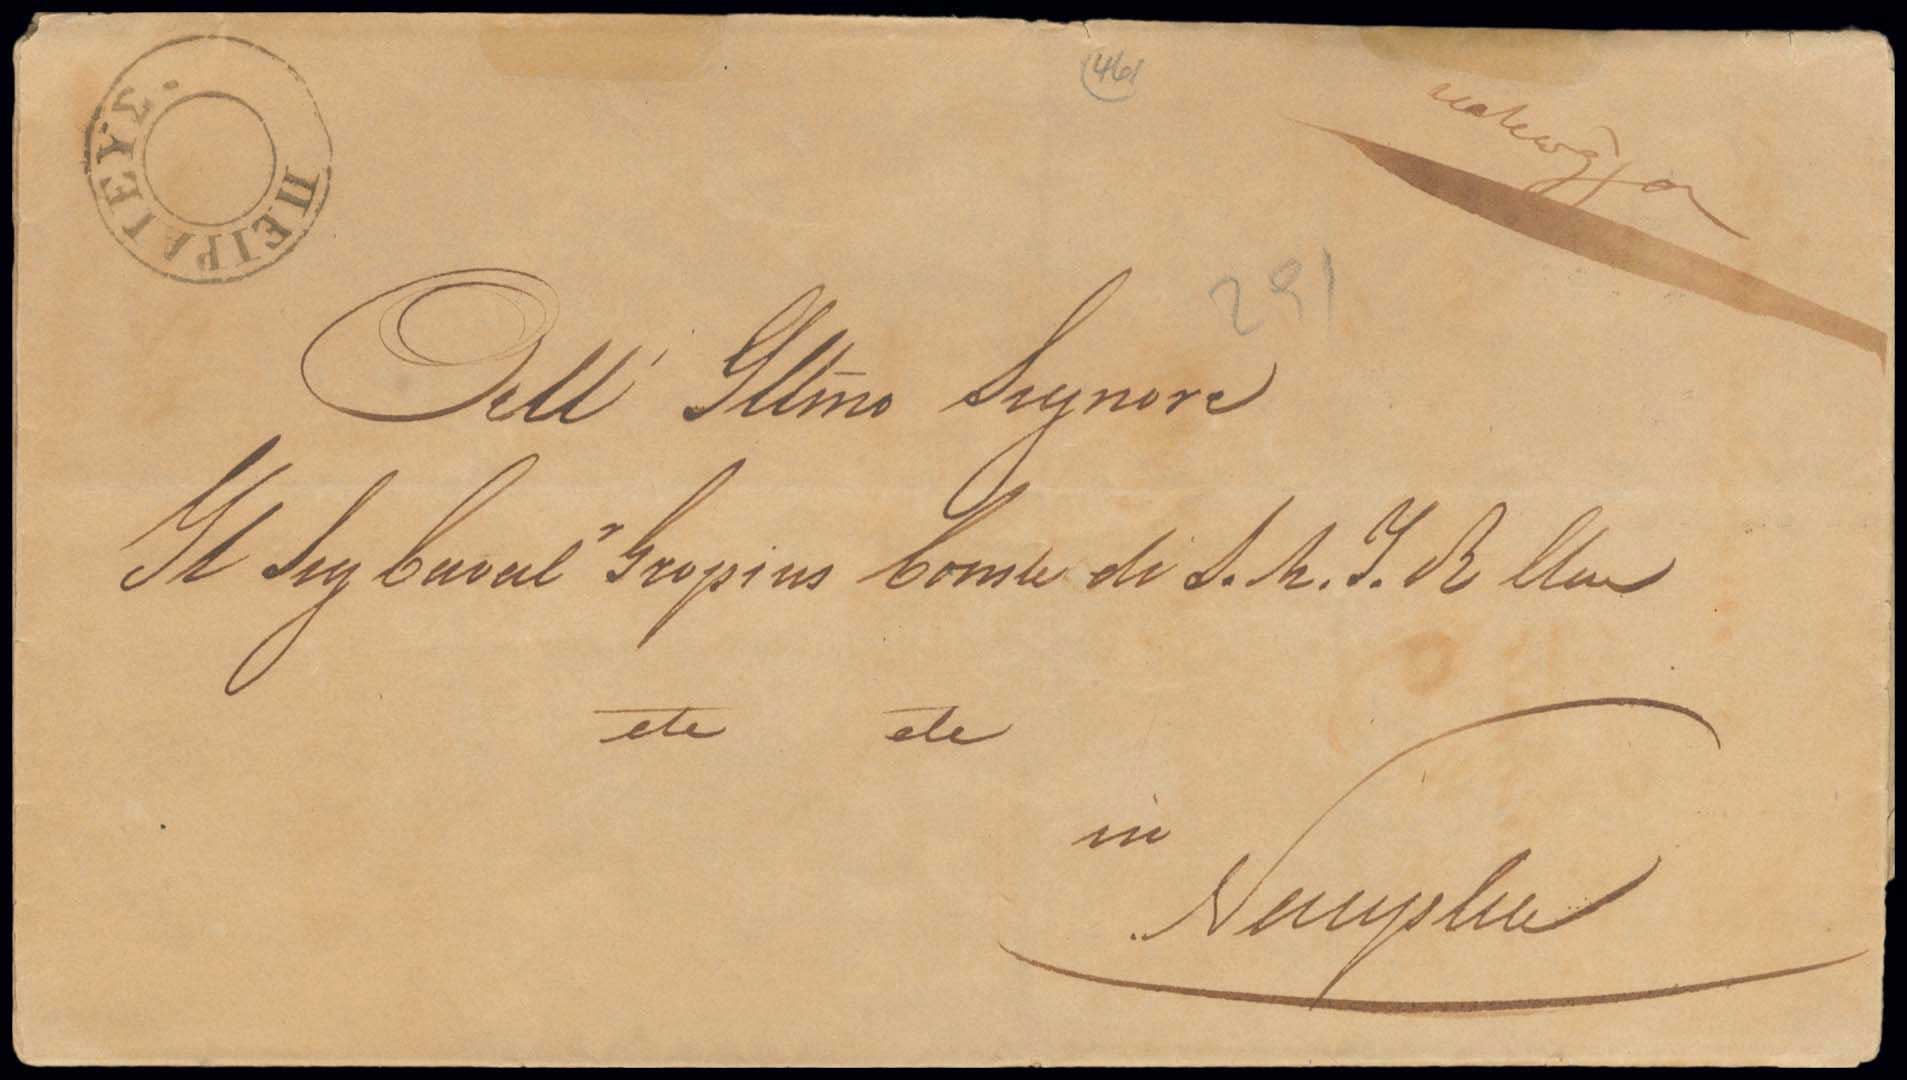 ΠΕΙΡΑΙΕΥΣ.
461
291
All' Illmo Signore
Il Sig Caval.r Gropius Consle di S. M. I. R.
etc etc
in
Nauplia